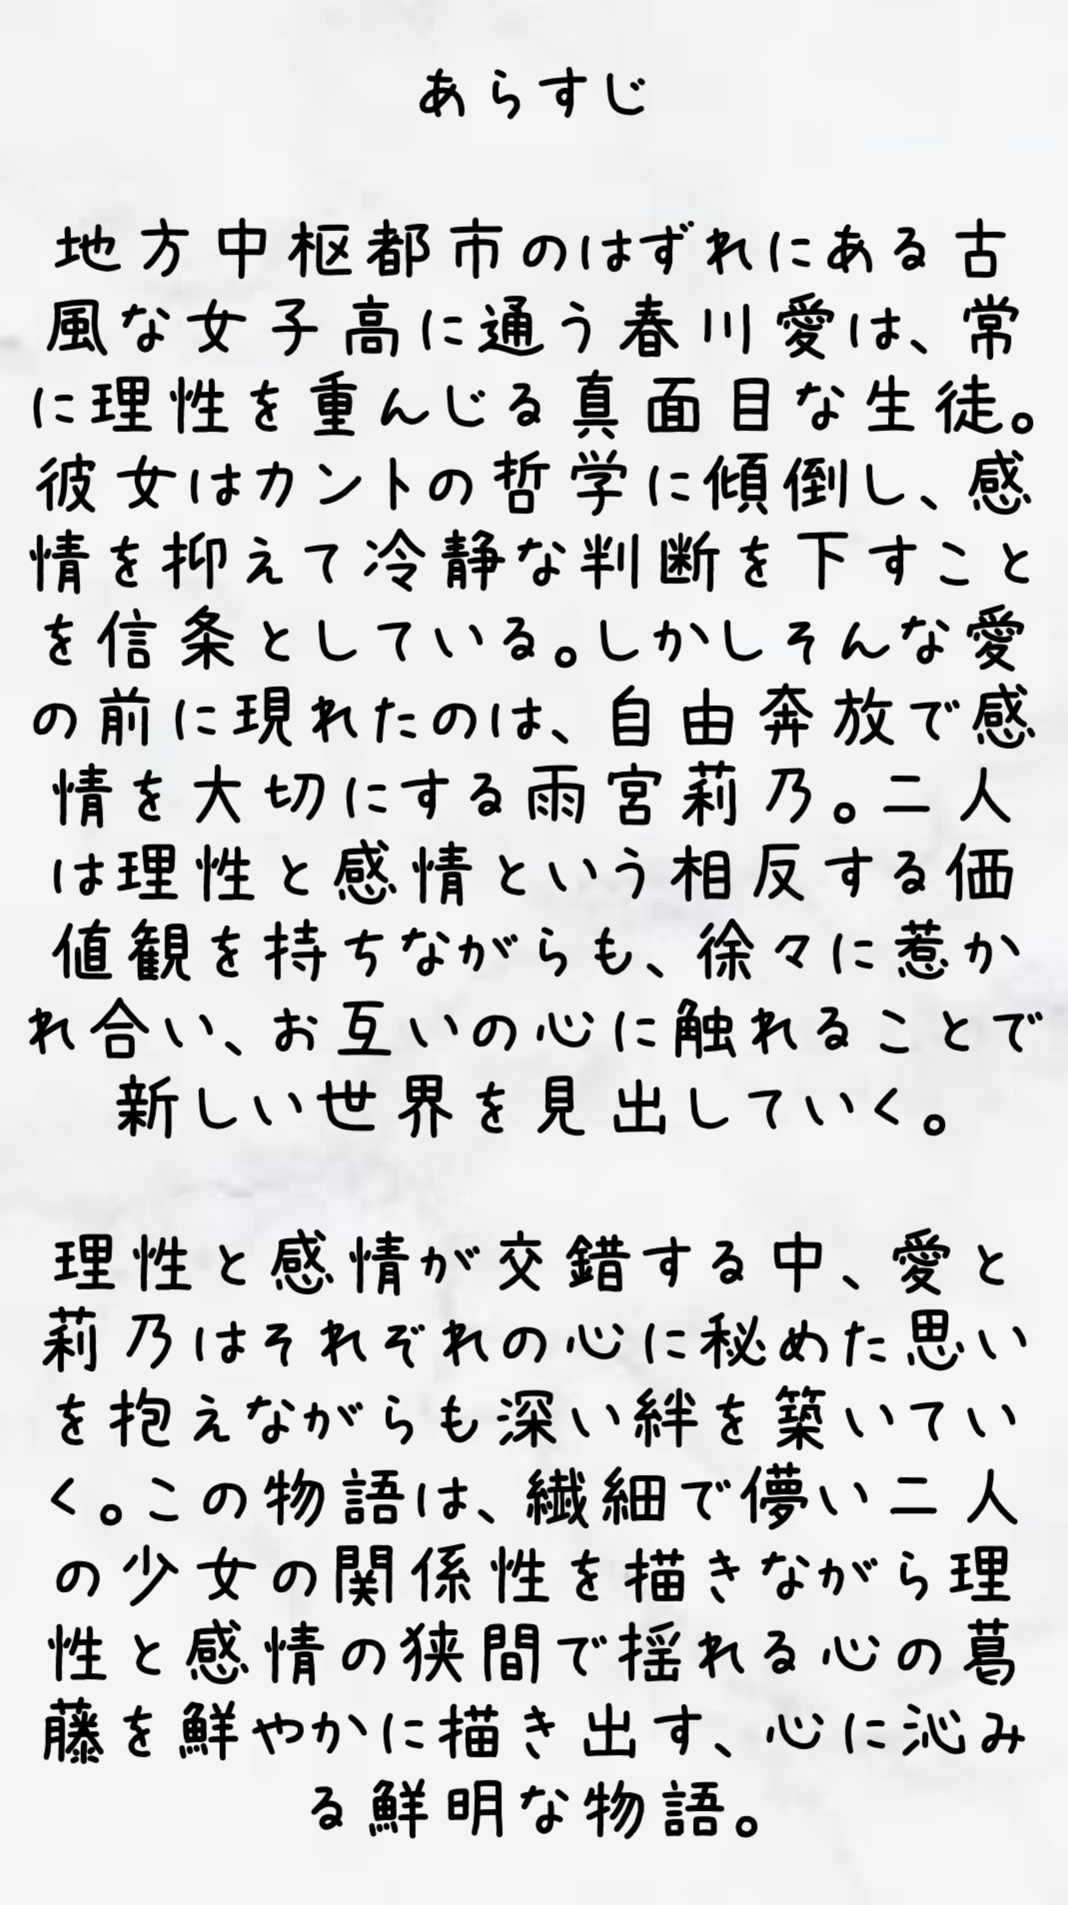 あらすじ
地方中枢都市のはずれにある古
風な女子高に通う春川愛は、常
に理性を重んじる真面目な生徒。
彼女はカントの哲学に傾倒し、感
情を抑えて冷静な判断を下すこと
を信条としている。しかしそんな愛
の前に現れたのは、自由奔放で感
情を大切にする雨宮莉乃。二人
は理性と感情という相反する価
値観を持ちながらも、徐々に惹か
れ合い、お互いの心に触れることで
新しい世界を見出していく。
理性と感情が交錯する中、愛と
莉乃はそれぞれの心に秘めた思い
を抱えながらも深い絆を築いてい
く。この物語は、繊細で儚い二人
の少女の関係性を描きながら理
性と感情の狭間で揺れる心の葛
藤を鮮やかに描き出す、心に沁み
る鮮明な物語。